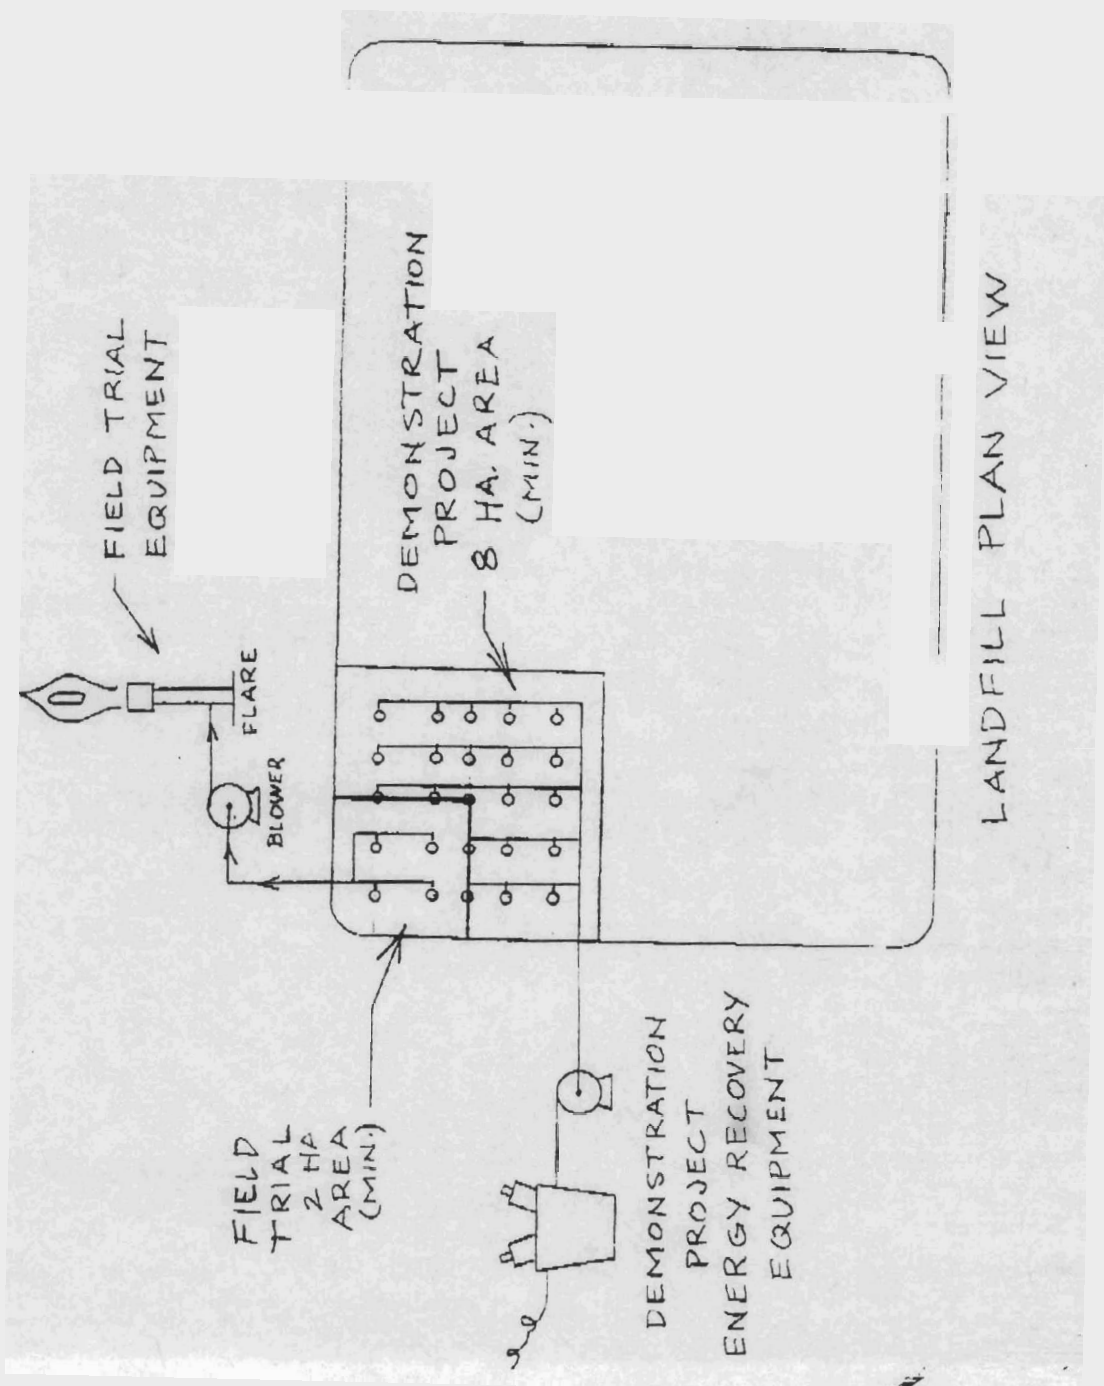 FIELD TRIAL
EQUIPMENT
FLARE
BLOWER
DEMONSTRATION
PROJECT
8 HA. AREA
(MIN.)
FIELD
TRIAL
2 HA
AREA
(MIN.)
DEMONSTRATION
PROJECT
ENERGY RECOVERY
EQUIPMENT
LANDFILL PLAN VIEW